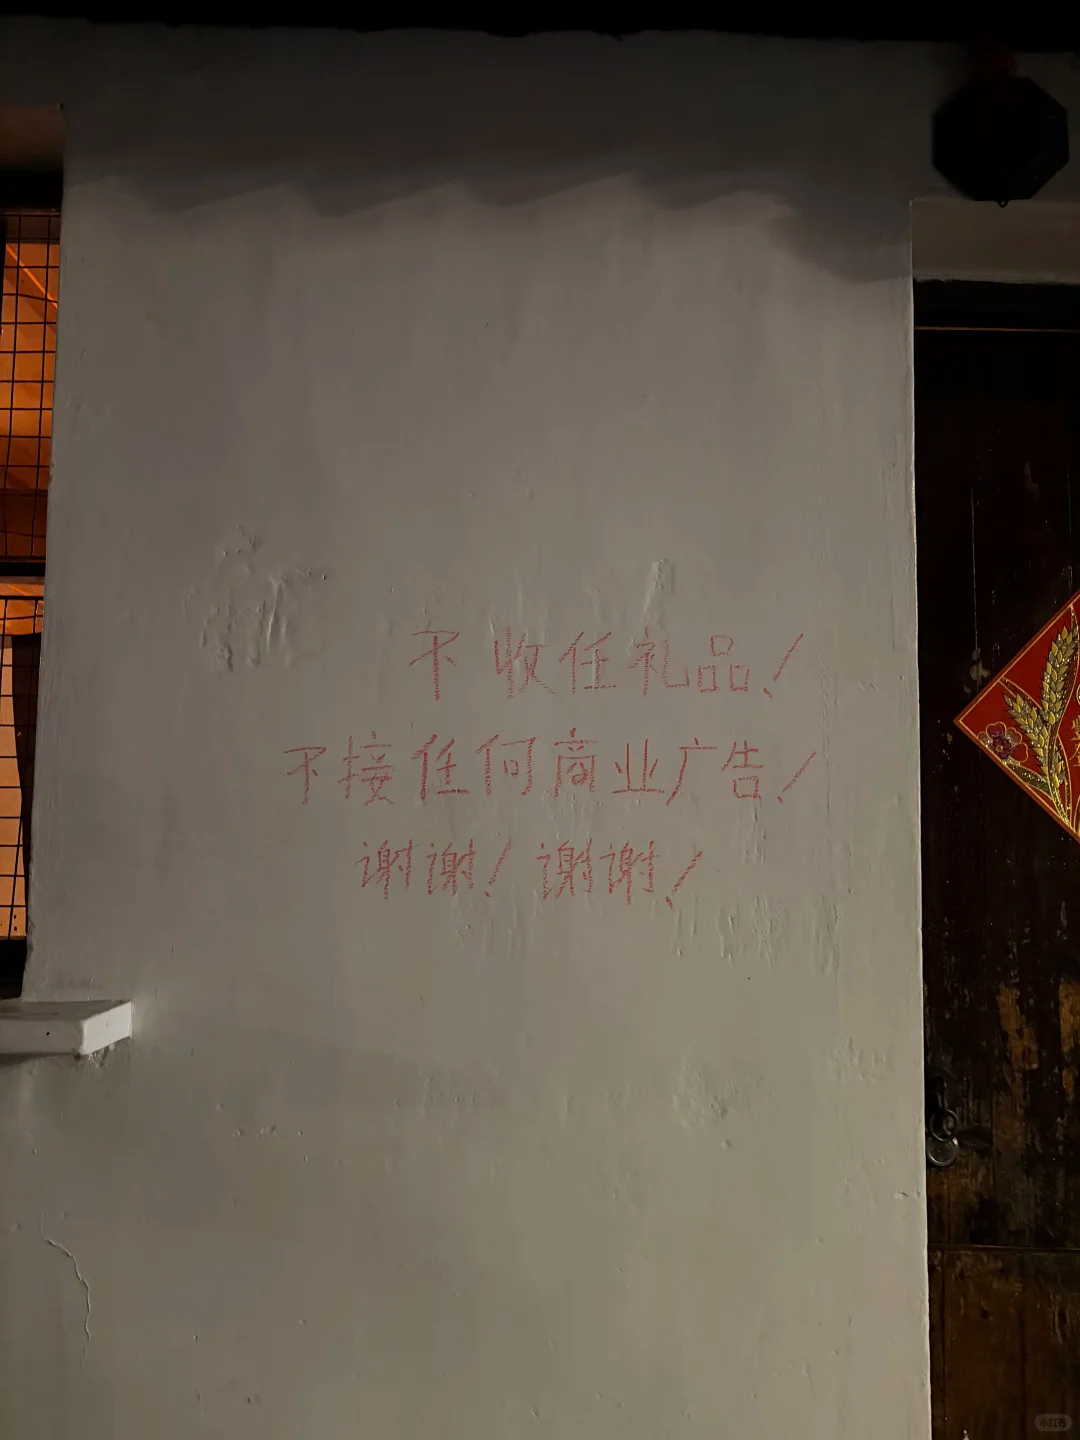 不收任礼品！
不接任何商业广告！
谢谢！谢谢！
小红书